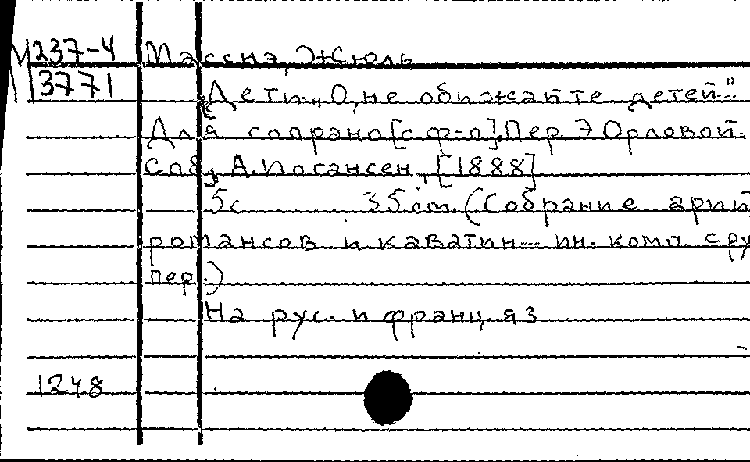 М237-4 Массне, Жюль
13771
Дети. „О, не обижайте детей."
Для сопрано [с ф-п]. Пер. Э. Орловой.
Спб, А. Иогансен, [1888]
5с 35 cm. (Собрание арий
романсов и каватин... ин. комп. с ру
пер.)
На рус. и франц. яз
1248